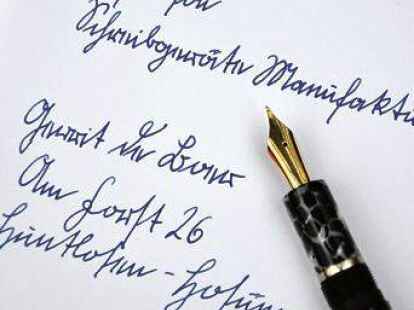 Schreibgeräte Manufaktu
Gerrit de Boer
Am Forst 26
Huntlosen - Hosüne